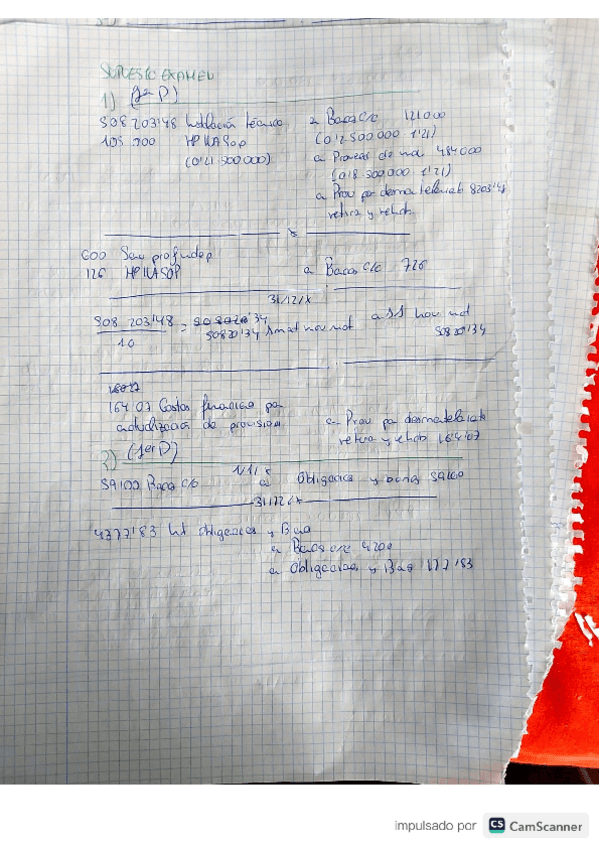 SUPUESTO EXAMEN
1) (1er P)
508 203'48 Instalación técnica a Bacos c/c 121000
105 000 HP IVA Sop (0'2·500 000·1'21)
(0'21·500000) a Proveed de inmov 484 000
(0'8·500 000·1'21)
a Prov por desmantelamiento 8203'48
retiro y rehab.
600 Serv profindep
126 HP IVA SOP a Bacos c/c 726
31/12/X
508 203'48 / 10 = 50820'34 Amat inov mat a AA inov mat
50820'34
164'07 Gastos financieros por a Prov por desmantelamiento
actualización de provisión retiro y rehab 164'07
2) (1er P)
1/1/X
59100 Bacos c/c a Obligaciones y bonos 59100
31/12/X
4377'83 Int Obligaciones y Bono
a Bacos c/c 4200
a Obligaciones y Bonos 177'83
impulsado por CS CamScanner